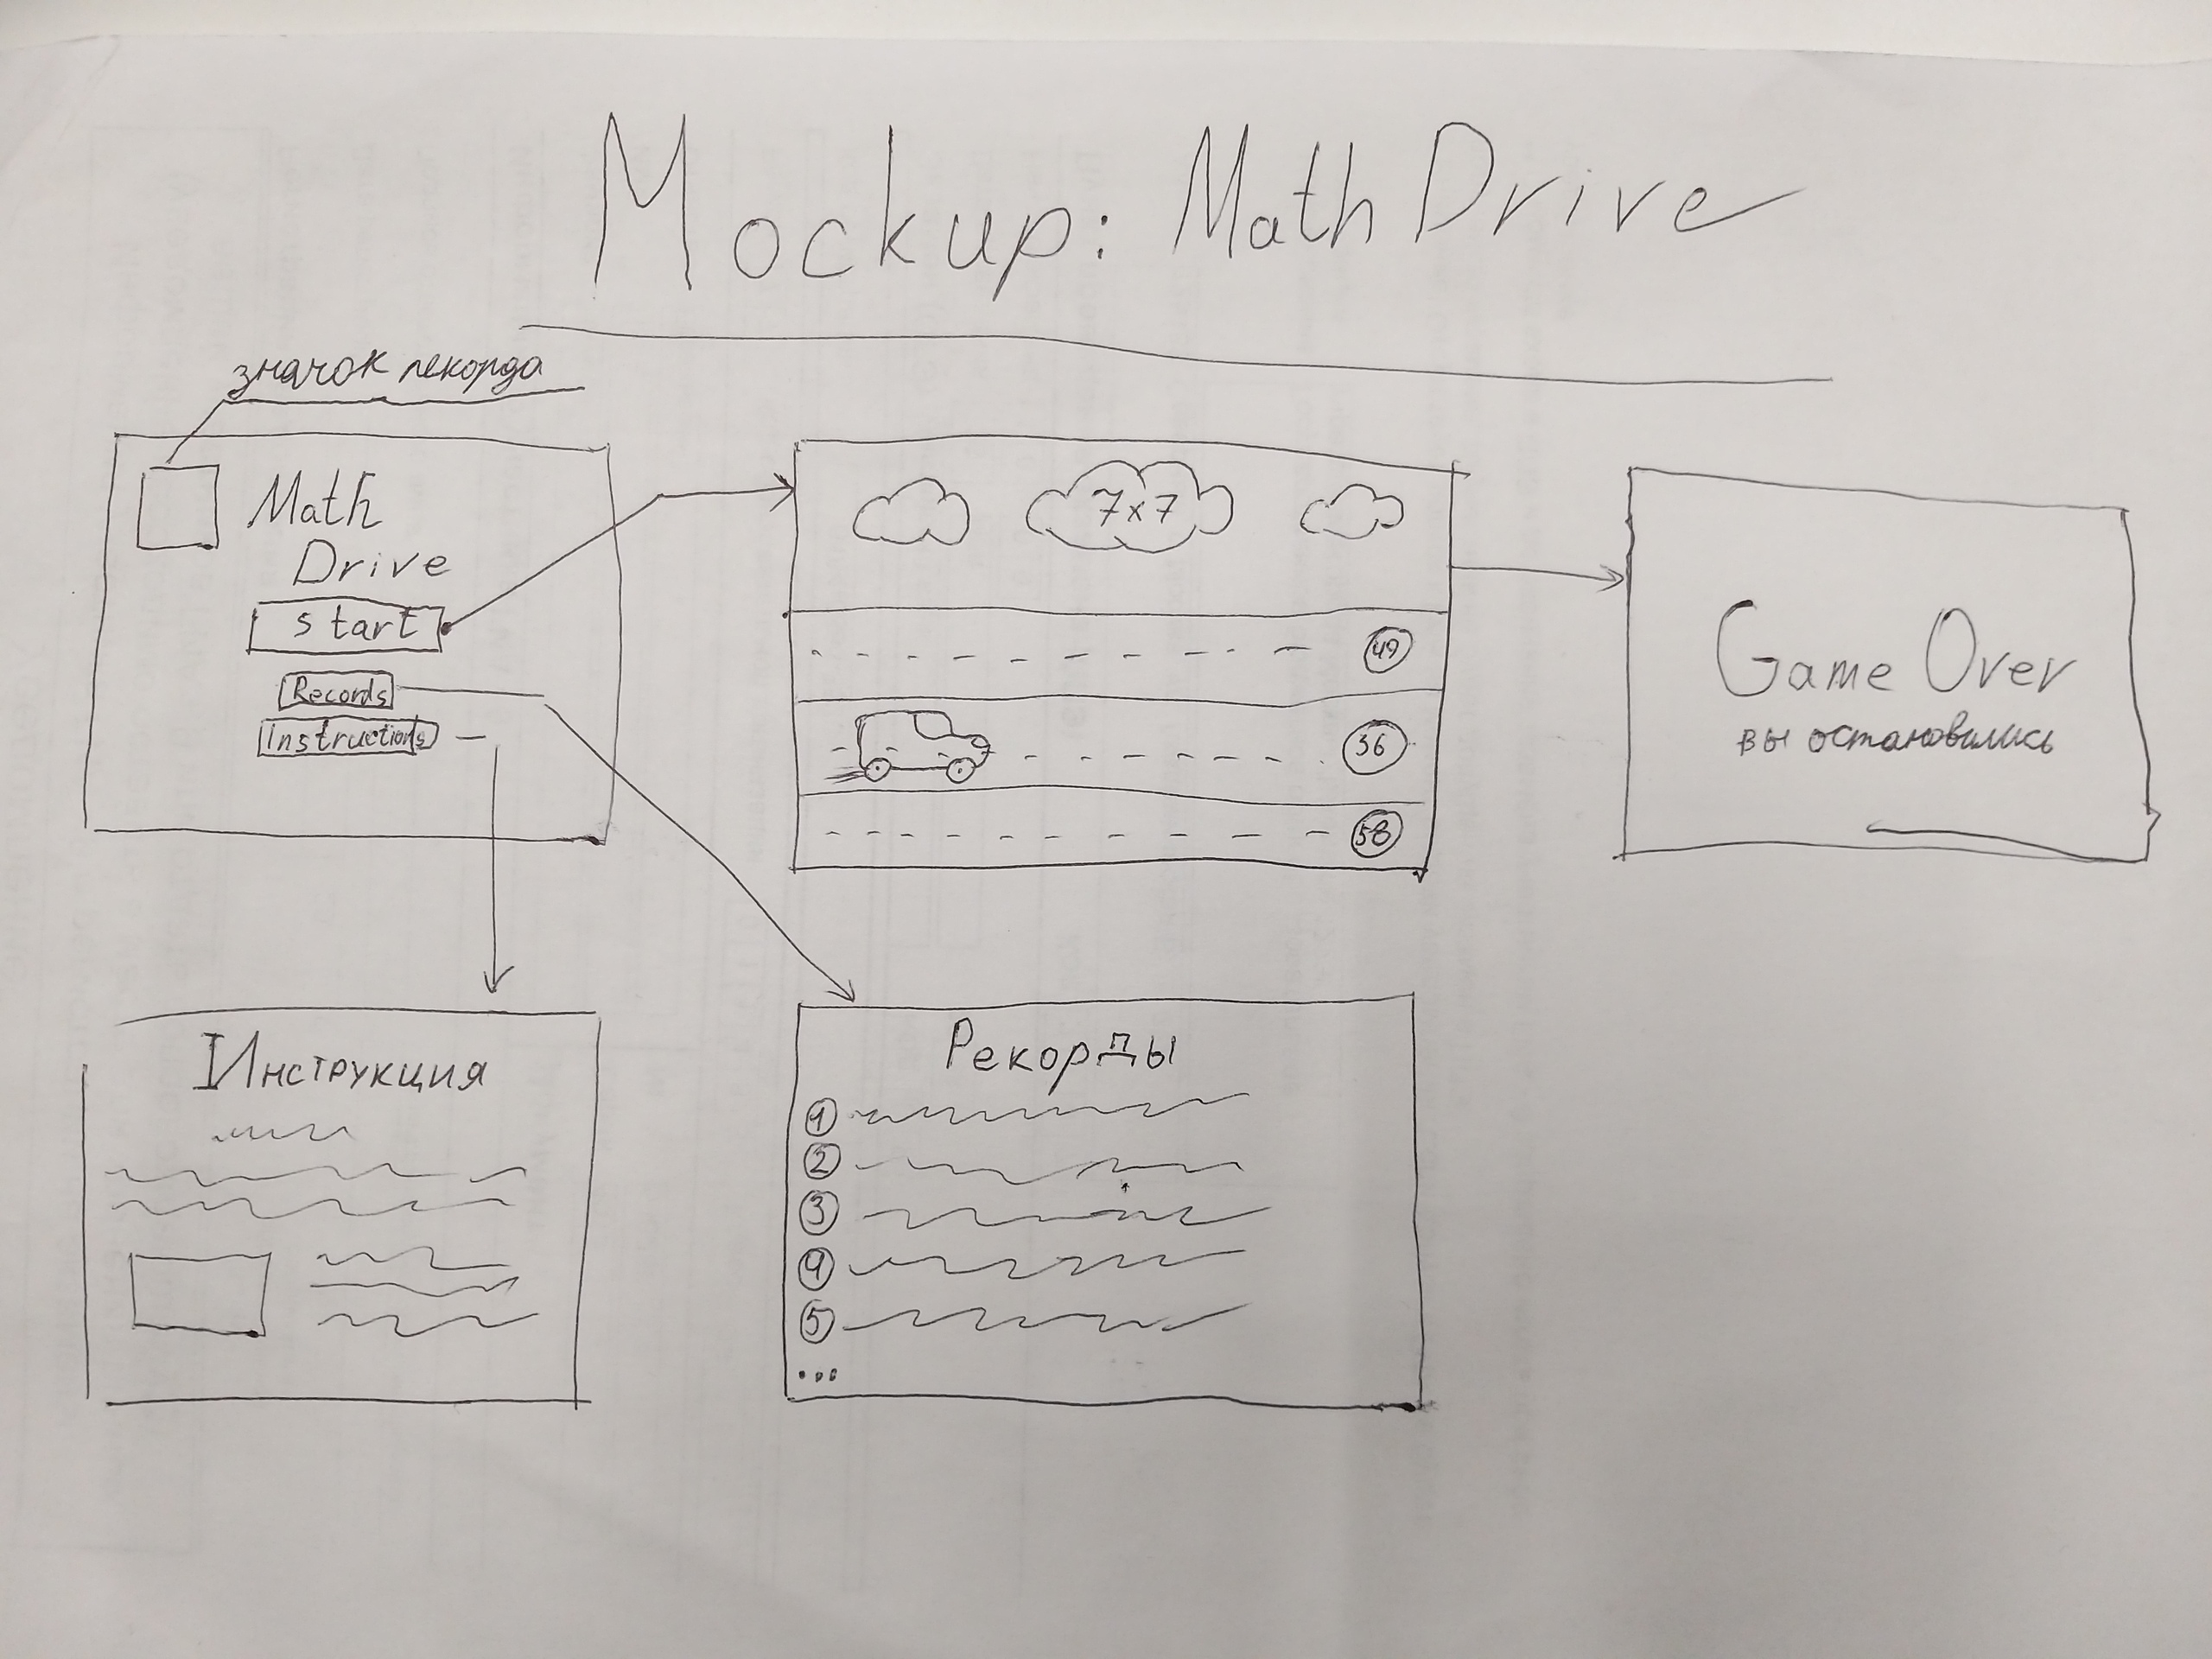 Mockup: Math Drive
значок рекорда
Math
Drive
start
Records
Instructions
7×7
49
36
58
Game Over
вы остановились
Инструкция
Рекорды
1
2
3
4
5
...